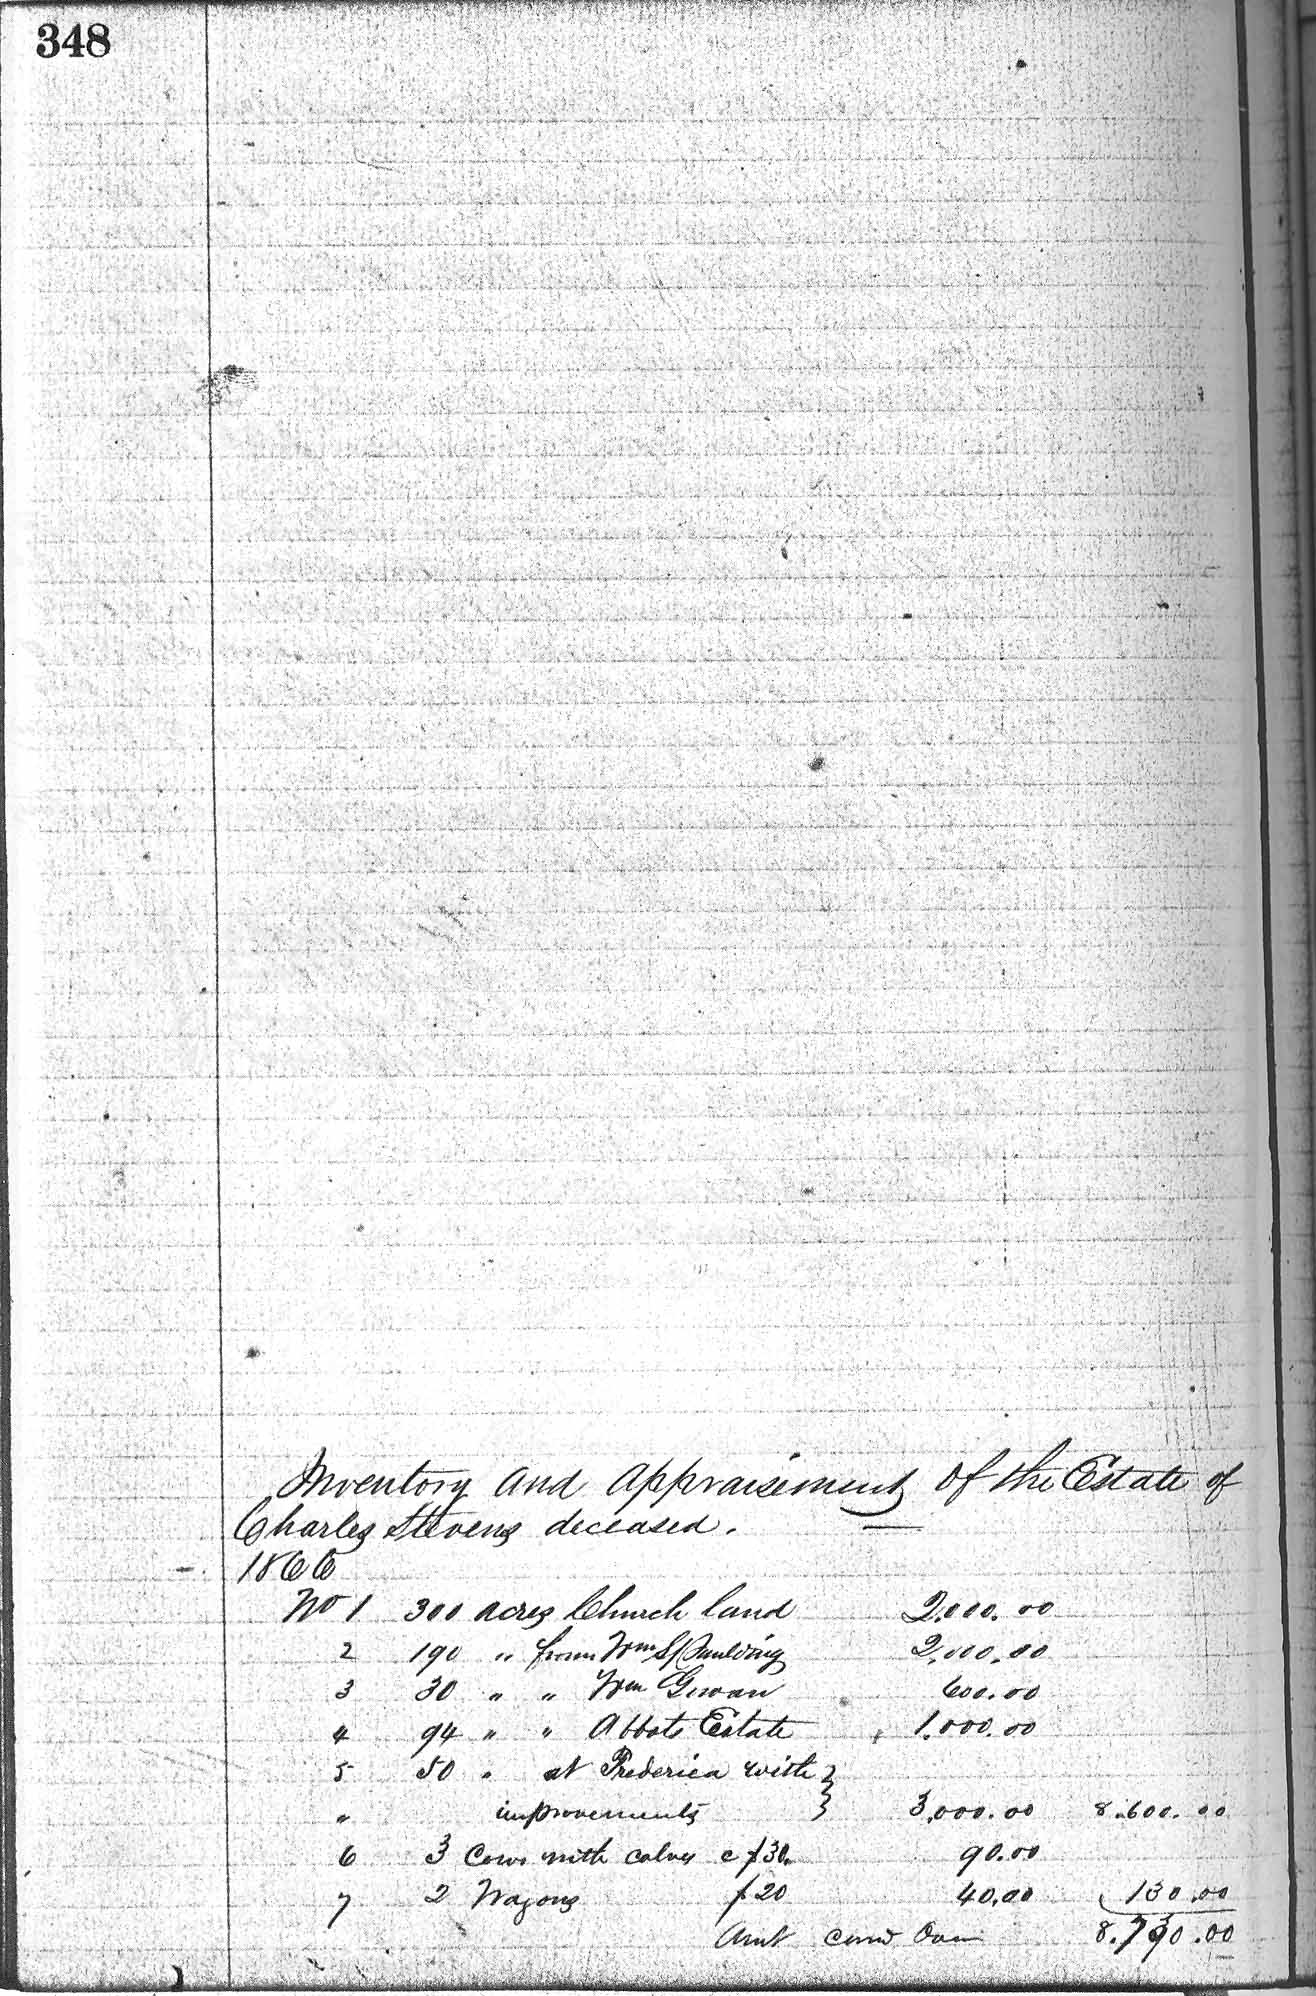 348
Inventory and Appraisement of the Estate of
Charles Stevens deceased.
1866
No 1 300 acres Church land 2,000.00
2 190 " from Wm Spaulding 2,000.00
3 30 " " Wm Gowan 600.00
4 94 " " Abbots Estate 1,000.00
5 50 " at Frederica with }
" improvements } 3,000.00 8,600.00
6 3 Cows with calves c $30. 90.00
7 2 Wagons $20 40.00 130.00
Amt carrd Over 8.730.00